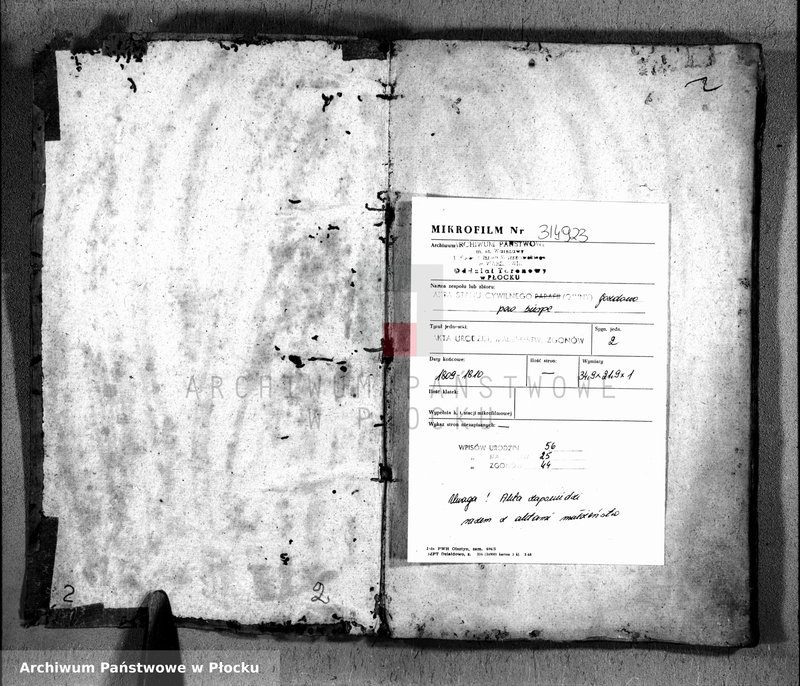 2
MIKROFILM Nr 314923
Archiwum:
ARCHIWUM PAŃSTWOWE
m. st. Warszawy
Oddział Terenowy
w PŁOCKU
Nazwa zespołu lub zbioru:
AKTA STANU CYWILNEGO PARAFII (GMINY) Gozdowo
pow. Sierpc
Tytuł jednostki:
AKTA URODZEŃ, MAŁŻEŃSTW, ZGONÓW
Sygn. jedn.
2
Daty końcowe:
1809-1810
Ilość stron:
—
Wymiary
34,9 x 21,9 x 1
Ilość klatek:
Wykaz stron niezapisanych: —
WPISÓW URODZIN 56
" 25
" ZGONÓW 44
Uwaga! Akta zapowiedzi
razem z aktami małżeństw
ARCHIWUM PAŃSTWOWE
W PŁOCKU
2
2
Archiwum Państwowe w Płocku